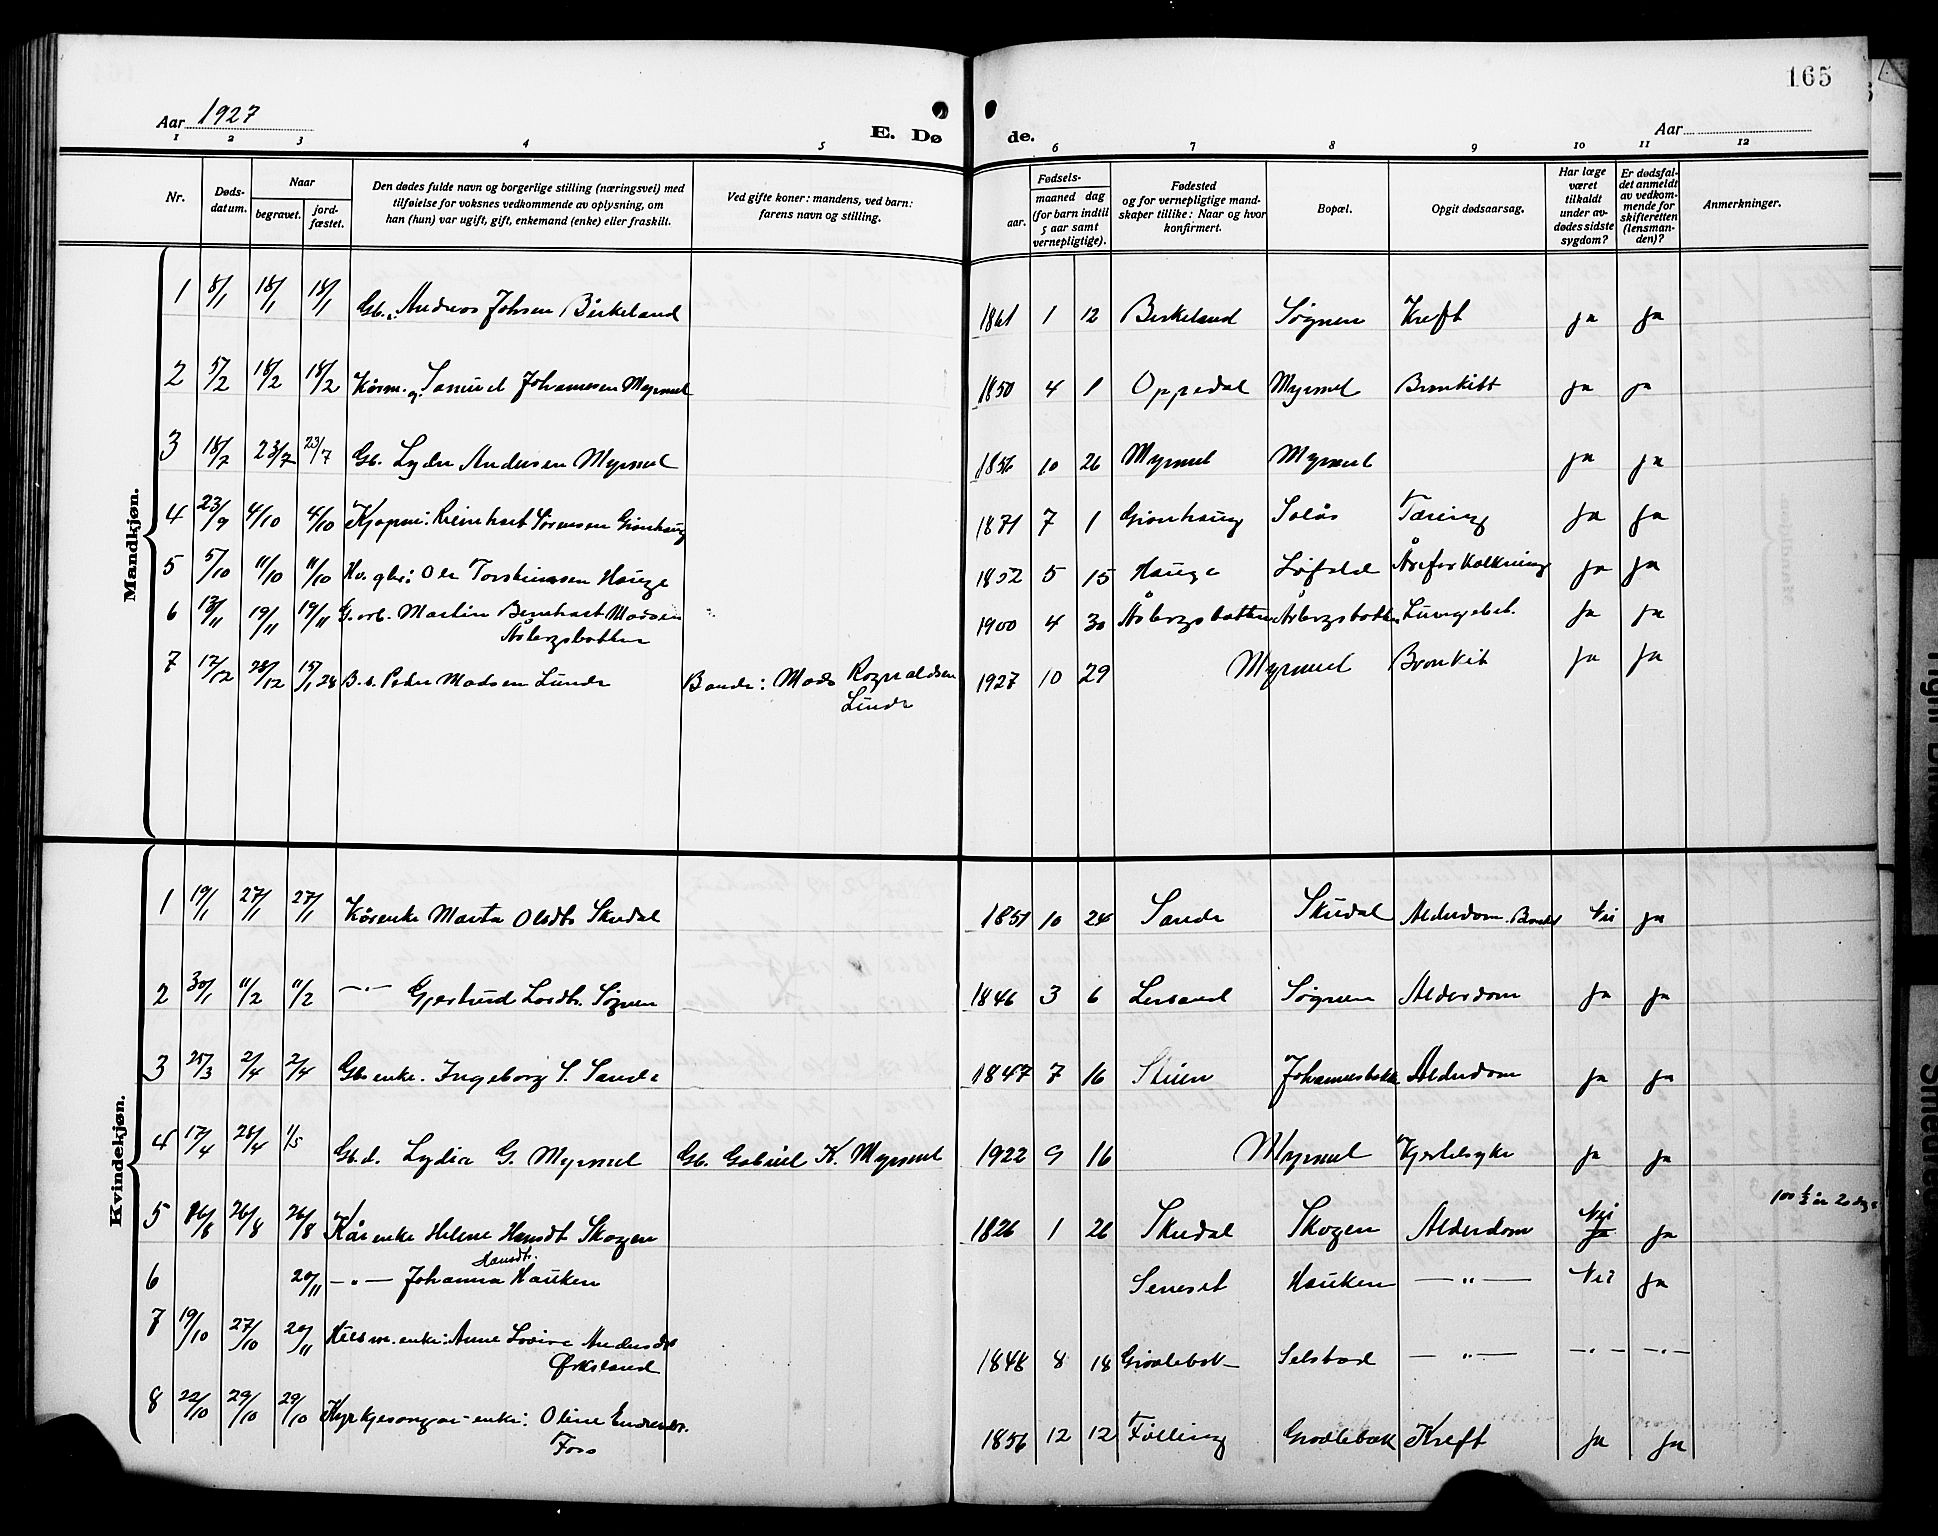 165
Aar 1927
E. Dø de.
Aar
1 2 3 4 5 6 7 8 9 10 11 12
Nr.
Døds-
datum.
Naar
begravet.
jord-
fæstet.
Den dødes fulde navn og borgerlige stilling (næringsvei) med
tilføielse for voksnes vedkommende av oplysning, om
han (hun) var ugift, gift, enkemand (enke) eller fraskilt.
Ved gifte koner: mandens, ved barn:
farens navn og stilling.
Fødsels-
aar.
maaned dag
(for barn indtil
5 aar samt
vernepligtige).
Fødested
og for vernepligtige mand-
skaper tillike: Naar og hvor
konfirmert.
Bopæl.
Opgit dødsaarsag.
Har læge
været
tilkaldt
under av-
dødes sidste
sygdom?
Er dødsfal-
det anmeldt
av vedkom-
mende for
skifteretten
(lensman-
den)?
Anmerkninger.
Mandkjøn.
1 8/1 18/1 18/1 Gb. Andreas Johsen Birkeland 1861 1 12 Birkeland Søgnen Kreft ja ja
2 5/2 18/2 18/2 Kårm. Samuel Johannesen Myrmel 1850 4 1 Oppedal Myrmel Bronkitt ja ja
3 18/7 23/7 23/7 Gb. Lyder Andersen Myrmel 1856 10 26 Myrmel Myrmel ja ja
4 23/9 4/10 4/10 Kjøpm: Reinhart Sørensen Grønhaug 1871 7 1 Grønhaug Solås Tæring ja ja
5 5/10 11/10 11/10 Ole Torsteinsen Hauge 1852 5 15 Hauge Åreforkalkning ja ja
6 13/11 19/11 19/11 G. arb. Martin Bernhart Madsen
Åsbergsbotten 1900 4 30 Åsbergsbotten Åsbergsbotten Lungebet. ja ja
7 17/12 28/12 15/1 28 B. s. Peder Madsen Lunde Bonde: Mads Rognaldsen
Lunde 1927 10 29 Myrmel Bronkit ja ja
Kvindekjøn.
1 19/1 27/1 27/1 Kårenke Marta Olsdtr Skudal 1851 10 24 Sande Skudal Alderdom. Nei ja
2 30/1 11/2 11/2 —"— Gjertrud Larsdtr. Søgnen 1846 3 6 Leirsand Søgnen Alderdom ja ja
3 25/3 2/4 2/4 Gb enke. Ingeborg S. Sande 1847 7 16 Stien Johannesbakk Alderdom ja ja
4 17/4 28/4 1/5 Gb. d. Lydia G. Myrmel Gb. Gabriel K. Myrmel 1922 9 16 Myrmel Kjertelsyke ja ja
5 16/8 26/8 26/8 Kårenke Helene Hansdtr Skogen 1826 1 26 Skudal Skogen Alderdom Nei ja ja 100 1/2 år 20 dage
6 20/11 —"— Johanna Hansdtr. Hauken Senesit Hauken —"— Nei ja
7 19/10 27/10 20/11 Husm. enke: Anne Lovise Andersdtr
Ørksland 1848 8 18 Grodlebak Selstad —"— —"— —"—
8 22/10 29/10 29/10 Kyrkjesongar-enke: Oline Endresdtr.
Foss 1856 12 12 Følling Grodlebakk Kreft ja ja